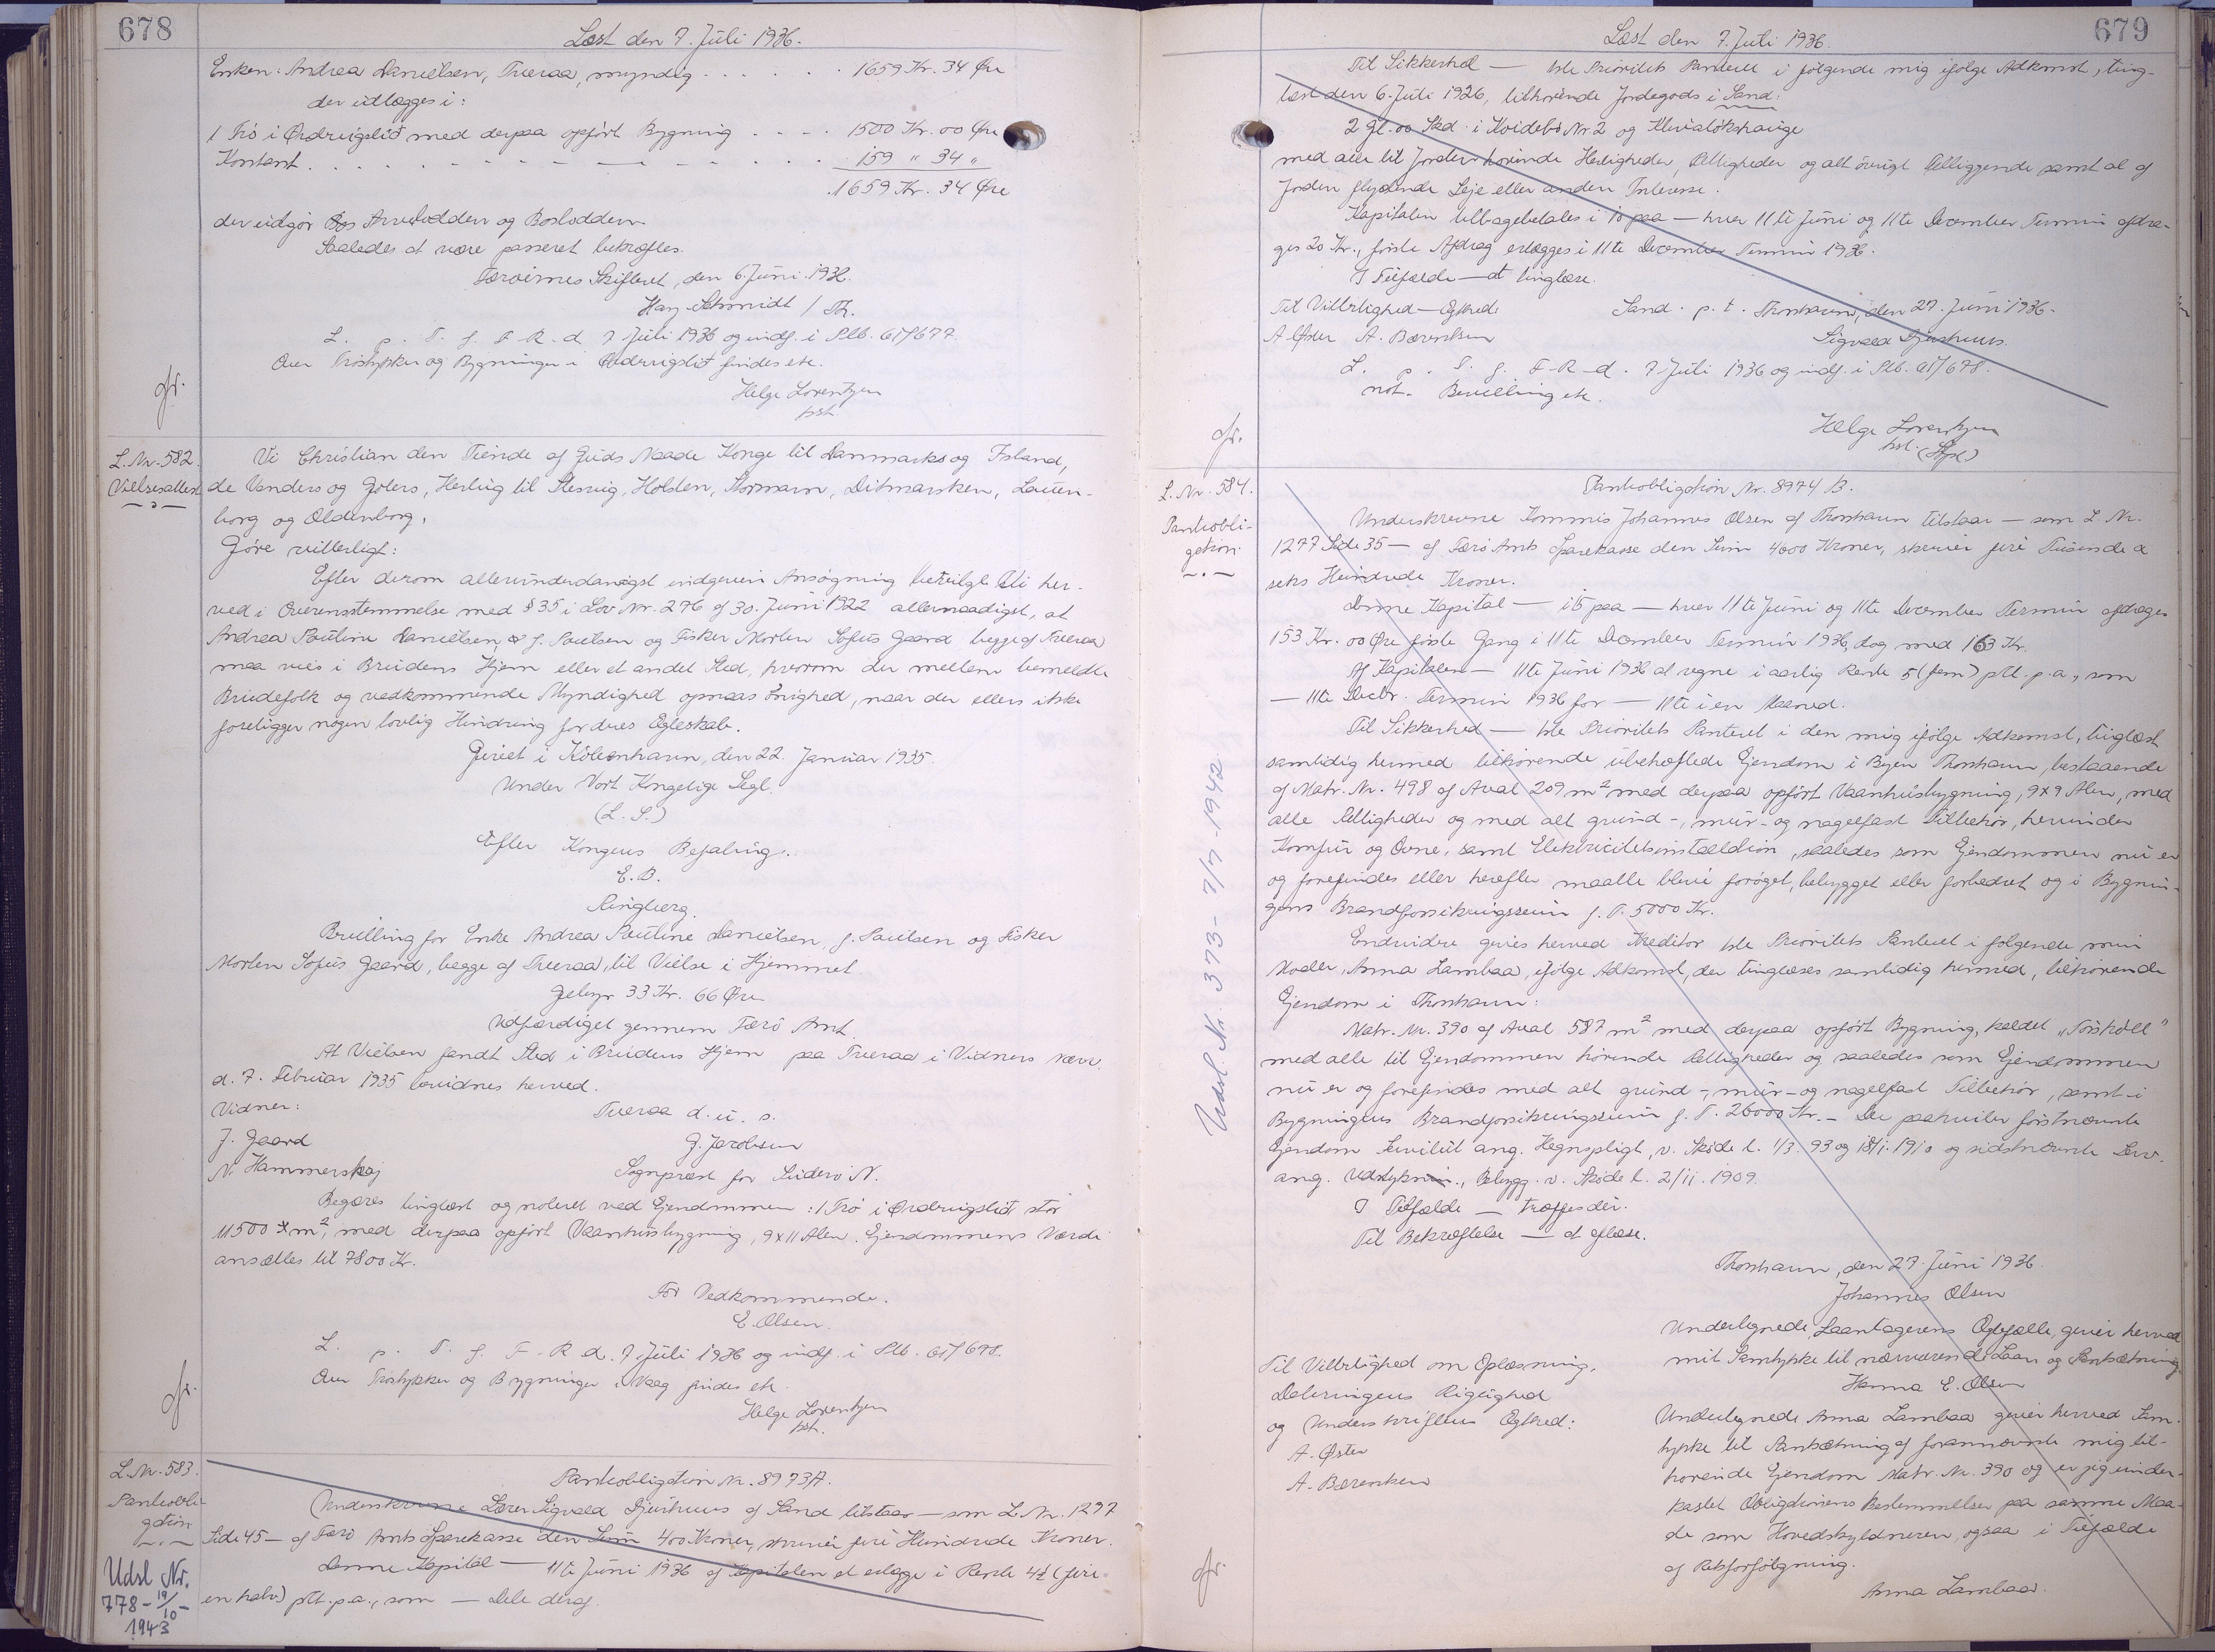 678
Læst den 7. Juli 1936.
Enken: Andrea Danielsen, Tveraa, myndig . . . . . . 1659 Kr. 34 Øre
der udlægges i:
1 Trö i Ørdrvigslid med derpaa opfört Bygning . . . . 1500 Kr. 00 Øre
Kontant . . . . . . . . . . . . . 159 " 34 "
1659 Kr. 34 Øre
der udgör Bos Arvelodden og Boslodden.
Saaledes at være passeret bekræftes.
Færöernes Skifteret, den 6. Juni 1936.
Hary Schmidt / Th.
L. p. T. f. F. R. d. 7 Juli 1936 og indf. i Plb. 61/677.
Over Tröstykker og Bygninger i Ørdrvigslid findes etc.
Helge Lorentzen
hst.
gfr.
L. Nr. 582.
Vielsesattest
Vi Christian den Tiende af Guds Naade Konge til Danmark og Island,
de Venders og Goters, Hertug til Slesvig, Holsten, Stormarn, Ditmarsken, Lauen-
borg og Oldenborg,
Göre vitterligt:
Efter derom allerunderdanigst indgiven Ansøgning bevilge Vi her-
ved i Overensstemmelse med § 35 i Lov Nr. 276 af 30. Juni 1922 allernaadigst, at
Andrea Pouline Danielsen, f. Poulsen og Fisker Morten Sofus Gaard begge af Tveraa
maa vies i Brudens Hjem eller et andet Sted, hvorom der mellem bemeldte
Brudefolk og vedkommende Myndighed opnaas Enighed, naar der ellers ikke
foreligger nogen lovlig Hindring for deres Egteskab.
Givet i Köbenhavn, den 22. Januar 1935.
Under Vort Kongelige Segl.
(L. S.)
Efter Kongens Befaling.
E. B.
Ringberg.
Bevilling for Enke Andrea Pouline Danielsen, f. Poulsen og Fisker
Morten Sofus Gaard, begge af Tveraa, til Vielse i Hjemmet.
Gebyr 33 Kr. 66 Øre
Udfærdiget gennem Færö Amt.
At Vielsen fandt Sted i Brudens Hjem paa Tveraa i Vidners nærv.
d. 7. Februar 1935 bevidnes herved.
Vidner: Tveraa d. u. s.
J. Gaard G. Jacobsen
N. Hammerskaj Sognepræst for Suderö N.
Begæres tinglæst og noteret ved Ejendommen: 1 Trö i Ørdrvigslid stör
11500 m², med derpaa opfört Vaanhusbygning, 9 x 11 Alen. Ejendommens Værdi
ansættes til 7800 Kr.
For Vedkommende.
E. Olsen.
L. p. T. f. F. R. d. 7 Juli 1936 og indf. i Plb. 61/678.
Over Tröstykker og Bygninger i Vaag findes etc.
Helge Lorentzen
hst.
gfr.
L. Nr. 583.
Pantobli-
gation
Udsl Nr.
778 - 19/10 -
1943
Pantobligation Nr. 8973 A.
Underskrevne Lærer Sigvald Djurhuus af Sand tilstaar — som L. Nr. 1297
Side 45 — af Færö Amts Sparekasse den Sum 400 Kroner, skriver fire Hundrede Kroner.
Denne Kapital — 11te Juni 1936 af Kapitalen at erlægge i Rente 4½ (fire
en halv) pCt. p.a., som — Dele deraf.
679
Læst den 7. Juli 1936.
Til Sikkerhed — 1ste Prioritets Panteret i følgende mig ifølge Adkomst, ting-
læst den 6. Juli 1926, tilhörende Jordegods i Sand:
2 Gl. 00 Skd. i Koidebö Nr 2 og Klivalökshauge
med alle til Jorden hörende Herligheder, Rettigheder og alt övrigt Tilliggende samt al af
Jorden flydende Leje eller anden Interesse.
Kapitalen tilbagebetales i 10 paa — hver 11te Juni og 11te December Termin afdra-
ges 20 Kr., förste Afdrag erlægges i 11te December Termin 1936.
I Tilfælde — at tinglæse.
Til Vitterlighed — Egthed: Sand p. t. Thorshavn, den 27. Juni 1936.
A. Øster A. Bærentsen Sigvald Djurhuus.
L. p. T. f. F. R. d. 7 Juli 1936 og indf. i Plb. 61/678.
not. Bevilling etc.
Helge Lorentzen
hst. (Stpl)
gfr.
L. Nr. 584.
Pantobli-
gation.
Udsl. Nr. 373 - 7/7 - 1942
Pantobligation Nr. 8974 B.
Underskrevne Kommis Johannes Olsen af Thorshavn tilstaar — som L. Nr.
1277 Side 35 — af Færö Amts Sparekasse den Sum 4600 Kroner, skriver fire Tusinde &
seks Hundrede Kroner.
Denne Kapital — i 15 paa — hver 11te Juni og 11te December Termin afdrages
153 Kr. 00 Øre förste Gang i 11te December Termin 1936, dog med 163 Kr.
Af Kapitalen — 11te Juni 1936 at regne i aarlig Rente 5 (fem) pCt. p. a., som
— 11te Decbr. Termin 1936 for — 11te i en Maaned.
Til Sikkerhed — 1ste Prioritets Panteret i den mig ifölge Adkomst, tinglæst
samtidig hermed tilhörende ubehæftede Ejendom i Byen Thorshavn, bestaaende
af Matr. Nr. 498 af Areal 209 m² med derpaa opfört Vaanhusbygning, 9 x 9 Alen, med
alle Rettigheder og med alt grund-, mur- og nagelfast Tilbehör, herunder
Komfur og Ovne, samt Elektricitetsinstallation, saaledes som Ejendommen nu er
og forefindes eller herefter maatte blive forøget, bebygget eller forbedret og i Bygnin-
gens Brandforsikringssum f. T. 5000 Kr.
Endvidere gives herved Kreditor 1ste Prioritets Panteret i følgende min
Moder, Anna Lambaa, ifölge Adkomst, der tinglæses samtidig hermed, tilhörende
Ejendom i Thorshavn:
Matr. Nr. 390 af Areal 587 m² med derpaa opfört Bygning, kaldet
med alle til Ejendommen hörende Rettigheder og saaledes som Ejendommen
nu er og forefindes med alt grund-, mur- og nagelfast Tilbehör, samt i
Bygningens Brandforsikringssum f. T. 26000 Kr. — Der paahviler förstnævnte
Ejendom Servitut ang. Hegnspligt, v. Sköde l. 1/3. 93 og 18/1. 1910 og sidstnævnte Serv.
ang. Udstykn., Bebygg. v. Sköde l. 2/11. 1909.
I Tilfælde — træffes der.
Til Bekræftelse — at aflæse.
Thorshavn, den 27. Juni 1936.
Johannes Olsen
Undertegnede, Laantagerens Ægtefælle, giver herved
mit Samtykke til nærværende Laan og Pantsætning
Hanna E. Olsen
Til Vitterlighed om Oplæsning,
Dateringens Rigtighed
og Underskriftens Egthed:
A. Øster
A. Bærentsen
Undertegnede Anna Lambaa giver herved Sam-
tykke til Pantsætning af forannævnte mig til-
hörende Ejendom Matr. Nr. 390 og er jeg under-
kastet Obligationens Bestemmelser paa samme Maa-
de som Hovedskyldneren, ogsaa i Tilfælde
af Retsforfölgning.
Anna Lambaa.
gfr.